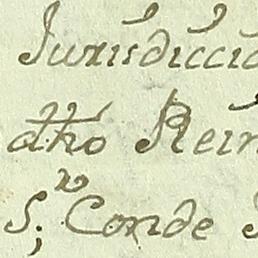 Jurisdiccio
dho Rein
S.r Conde